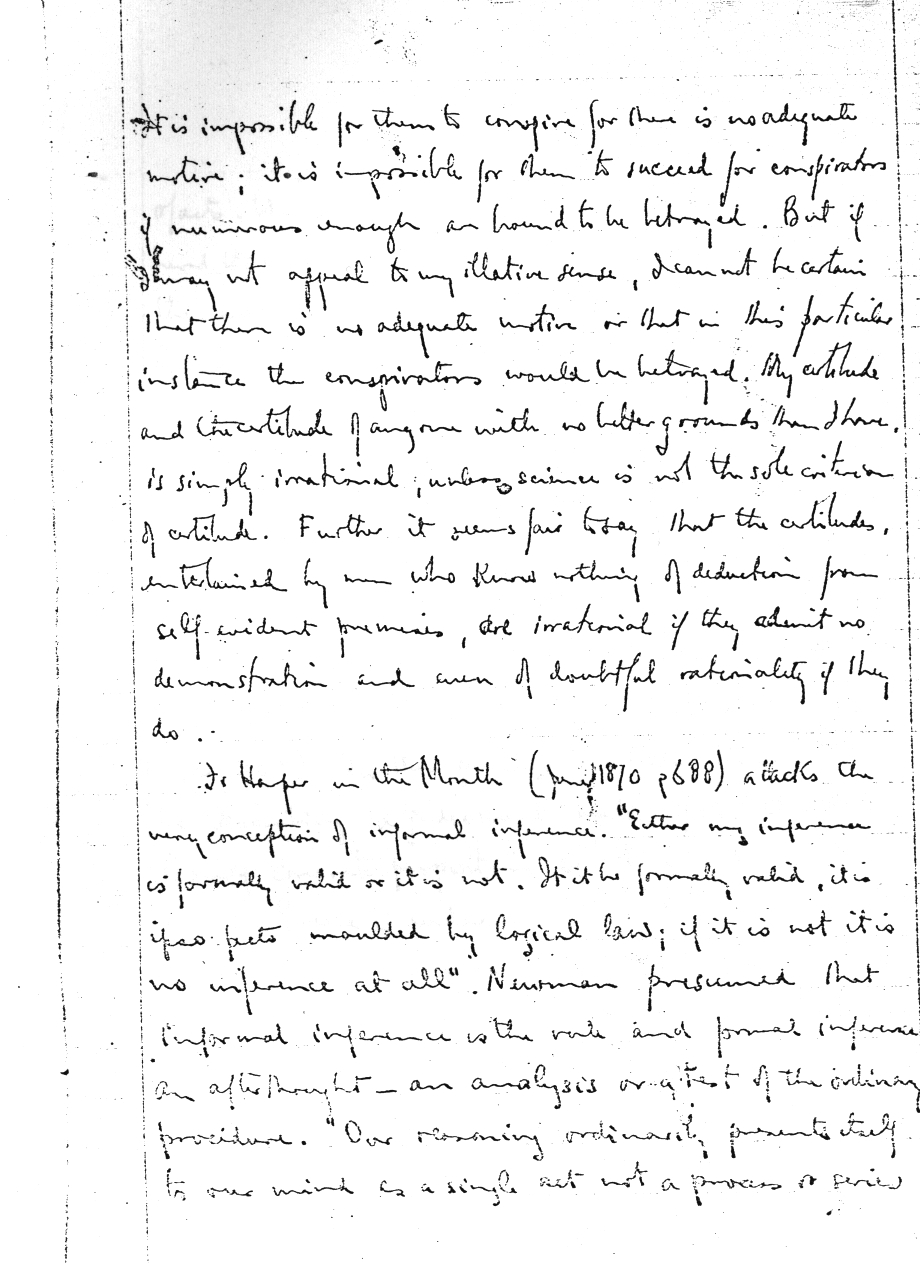 It is impossible for them to conspire for there is no adequate
motive; it is impossible for them to succeed for conspirators
if numerous enough are bound to be betrayed. But if
I may not appeal to my illative sense, I can not be certain
that there is no adequate motive or that in this particular
instance the conspirators would be betrayed. My certitude
and the certitude of anyone with no better grounds than I have,
is simply irrational, unless science is not the sole criterion
of certitude. Further it seems fair to say that the certitudes,
entertained by men who know nothing of deduction from
self-evident premises, are irrational if they admit no
demonstration and even of doubtful rationality if they
do.
Fr Harper in the Month (June 1870 p 688) attacks the
very conception of informal inference. "Either my inference
is formally valid or it is not. If it be formally valid, it is
ipso facto moulded by logical law; if it is not it is
no inference at all". Newman presumed that
informal inference is the rule and formal inference
an afterthought – an analysis or a test of the ordinary
procedure. "Our reasoning ordinarily presents itself
to our mind as a single act not a process or series